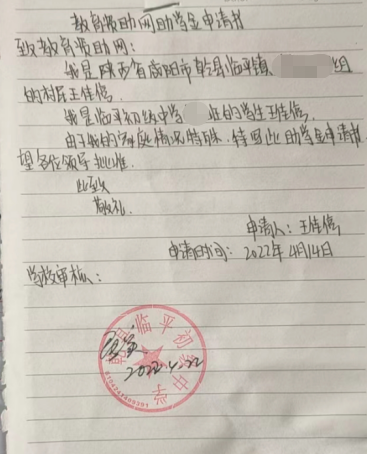 教育援助网助学金申请书
致教育援助网:
我是陕西省咸阳市乾县临平镇 组
的村民王佳信.
我是临平初级中学 班的学生王佳信.
由于我的家庭情况特殊.特写此助学金申请书
望各位领导批准.
此致
敬礼.
申请人:王佳信
申请日时间:2022年4月14日
学校审核:
乾县临平初级中学
2022.4.22